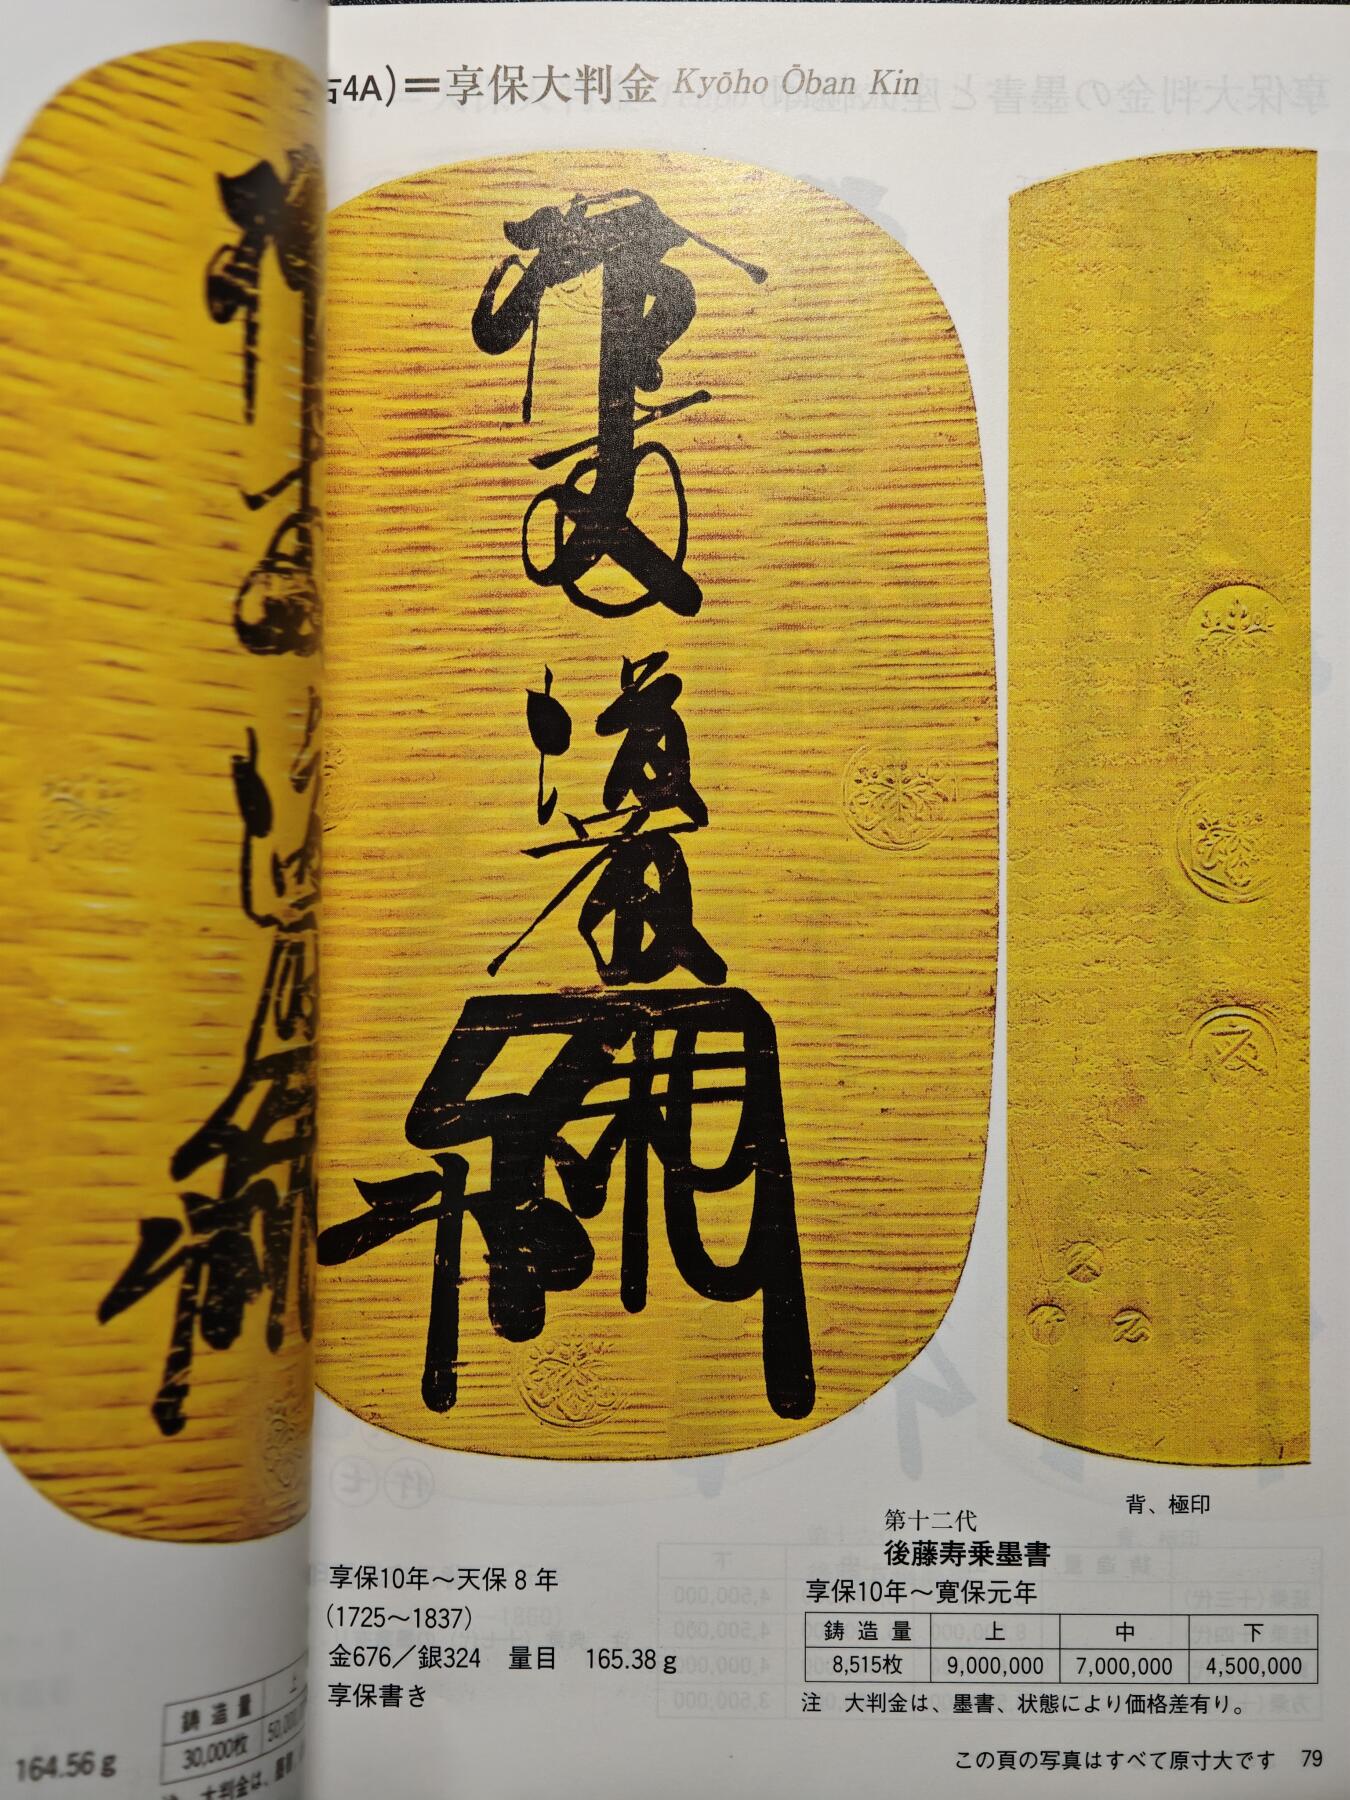 古4A)＝享保大判金 Kyōho Ōban Kin
背、極印
第十二代
後藤寿乗墨書
享保10年～寛保元年
鋳造量 上 中 下
8,515枚 9,000,000 7,000,000 4,500,000
注 大判金は、墨書、状態により価格差有り。
享保10年～天保8年
(1725～1837)
金676／銀324 量目 165.38g
享保書き
この頁の写真はすべて原寸大です 79
鋳造量 上
30,000枚
164.56g
注 大判金は、